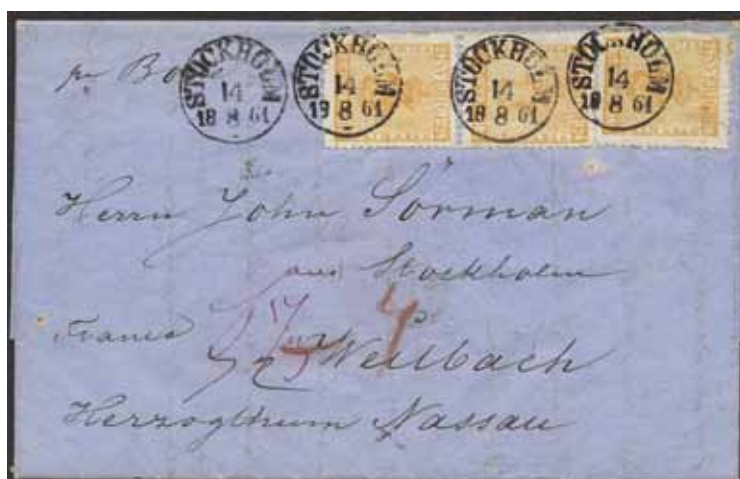 STOCKHOLM
14
18 8 61
STOCKHOLM
14
19 8 61
STOCKHOLM
14
18 8 61
STOCKHOLM
14
18 8 61
pr
Herrn John Sörman
aus Stockholm
4
Franco
Weilbach
Herzogthum Nassau